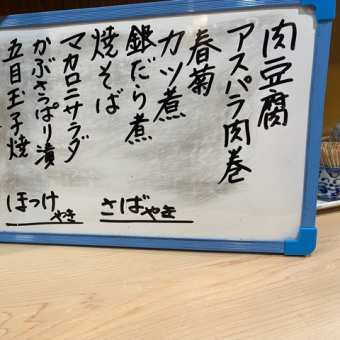 肉豆腐
アスパラ肉巻
春菊
カツ煮
銀だら煮
焼そば
マカロニサラダ
かぶさっぱり漬
五目玉子焼
さばやき
ほっけやき